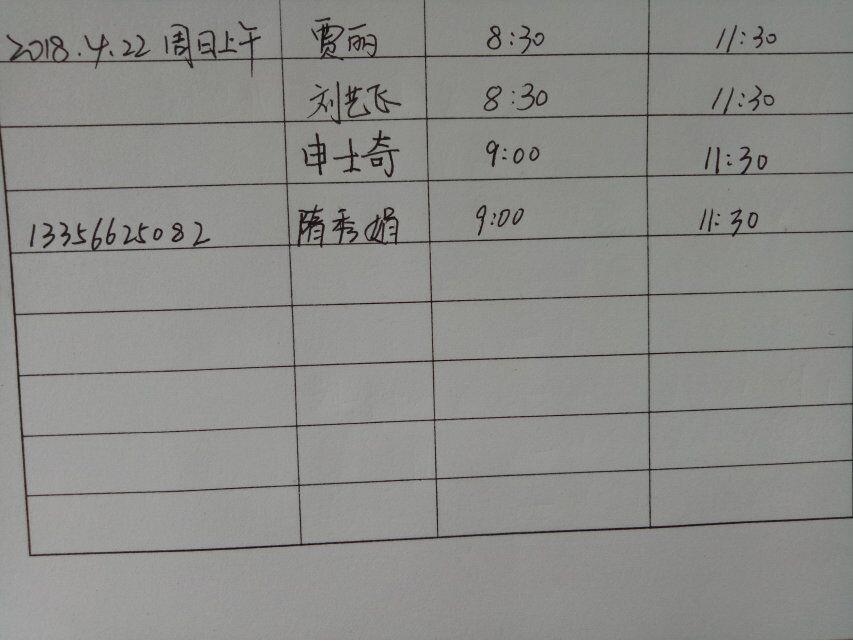 2018.4.22 周日上午 贾丽 8:30 11:30
刘艺飞 8:30 11:30
申士奇 9:00 11:30
13356625082 隋秀娟 9:00 11:30